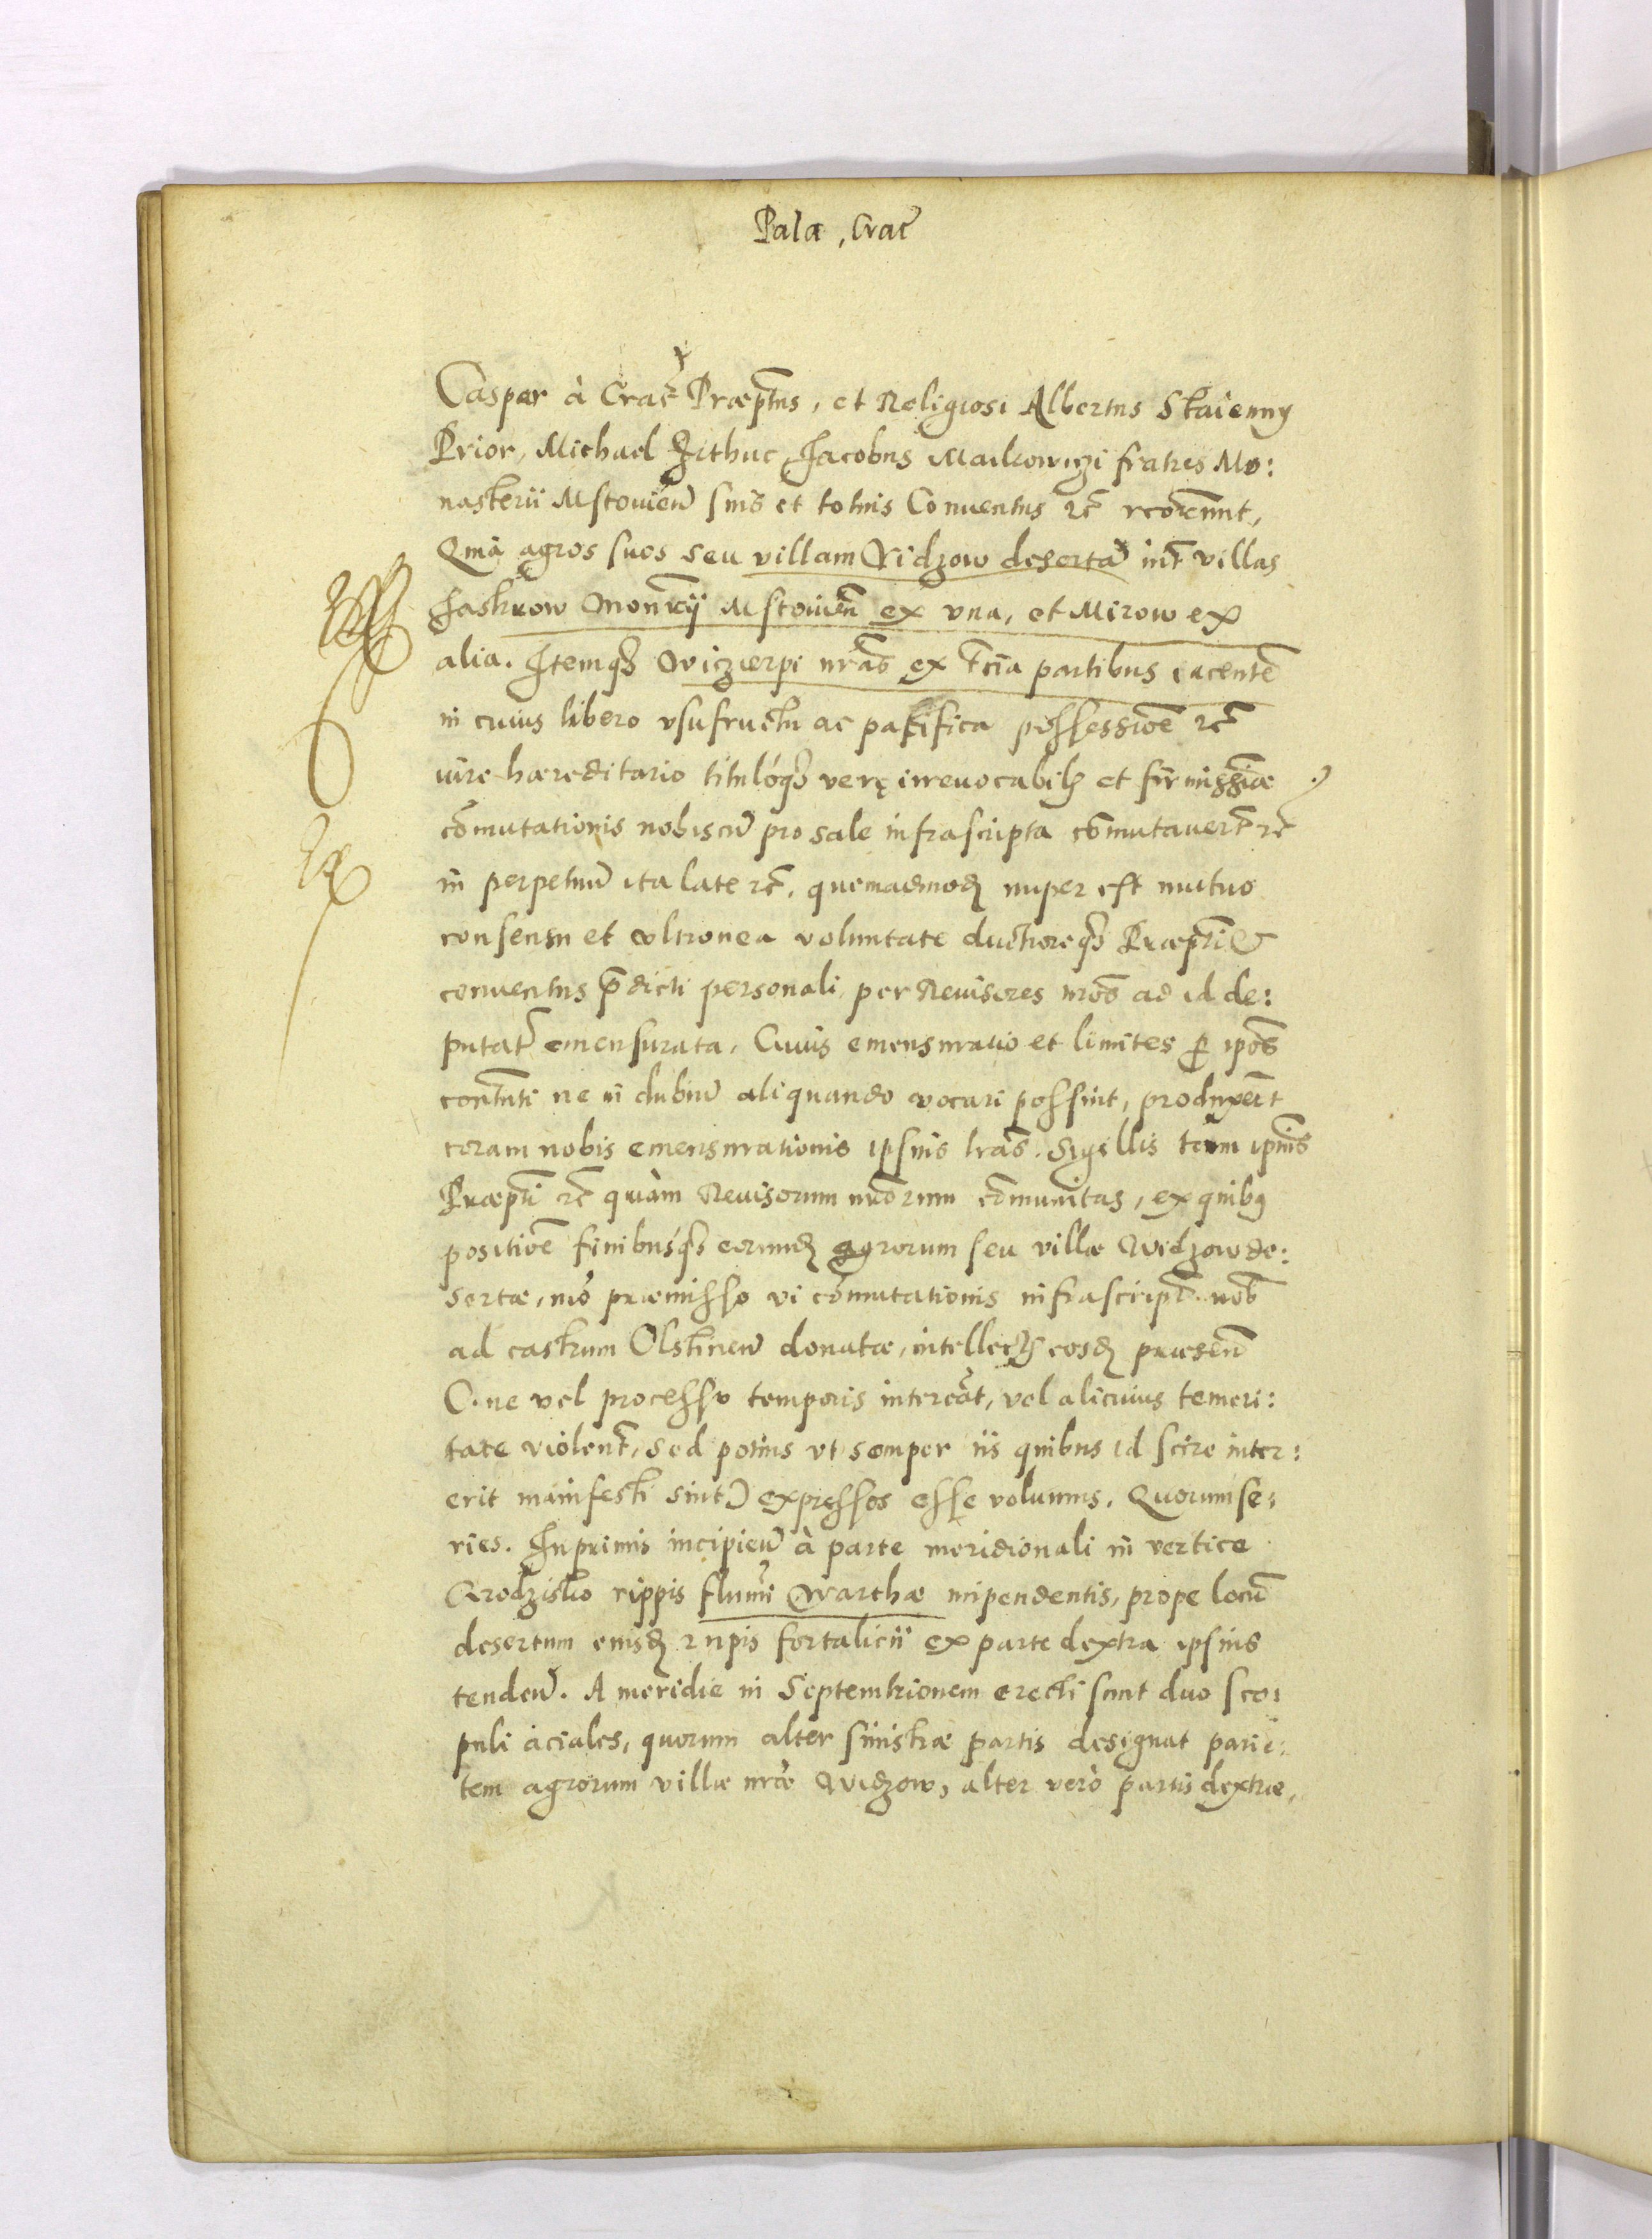 Palã, Crac̃
Casper à Crac̃ Præptus, et Religiosi Albertus Skaienny
Prior, Michael Jithuc Jacobus Maikowczi fratres Mo:
nasterii Mstouień suis et totius Conuentus rc̃ rcõrunt,
Qmã agros suos seu villam Widzow desertã int̃ villas
Jaskrow Monrij Mstouień ex vna, et Mirow ex
alia. Itemqȝ Wiczierpi nrãs ex tcĩa partibus iacentẽ
in cuius libero vsufructu ac pacifica possessiõe rc̃
iure hæreditario titulóqȝ verę irreuocabilȝ et firmissiæ
cõmutationis nobiscũ pro sale infrascripta cõmutauert̃ rc̃
in perpetuũ ita late rc̃, quemadmodȝ nuper est mutuo
consensu et vltronea voluntate ductioreqȝ Præpti &
conuentus p̃dicti personali per Reuisores nrõs ad id de:
putat̃ emensurata. Cuius emensuratio et limites p̱ ipõs
contenti ne in dubiũ aliquando vocari possint, produxert̃
coram nobis emensurationis ipsius lrãs. Sigillis tam ipiũs
Præpti rc̃ quàm Reuisorum nrõrum cõmunitas, ex quibꝰ
positiõe finibusqȝ eorundȝ agrorum seu villæ Widzow de:
sertæ, mõ præmisso vi cõmutationis infrascript̃ nob̃
ad castrum Olstineñ donatæ, intellectȝ eosdȝ præseñ
(.ne vel processu temporis intereãt, vel alicuius temeri:
tate violent̃, sed potius vt semper iis quibus id scire inter:
erit manifesti sint) expressos esse volumus. Quorum se:
ries. Inprimis incipień à parte meridionali in vertice
Grodzisko rippis flumi Warthæ inpendentis, prope locũ
desertum eiusdȝ rupis fortalicii ex parte dextra ipsius
tendeñ. A meridie in Septemtrionem erecti sunt duo sco:
puli aciales, quorum alter sinistræ partis designat parie:
tem agrorum villæ nræ Widzow, alter verò partis dextræ,